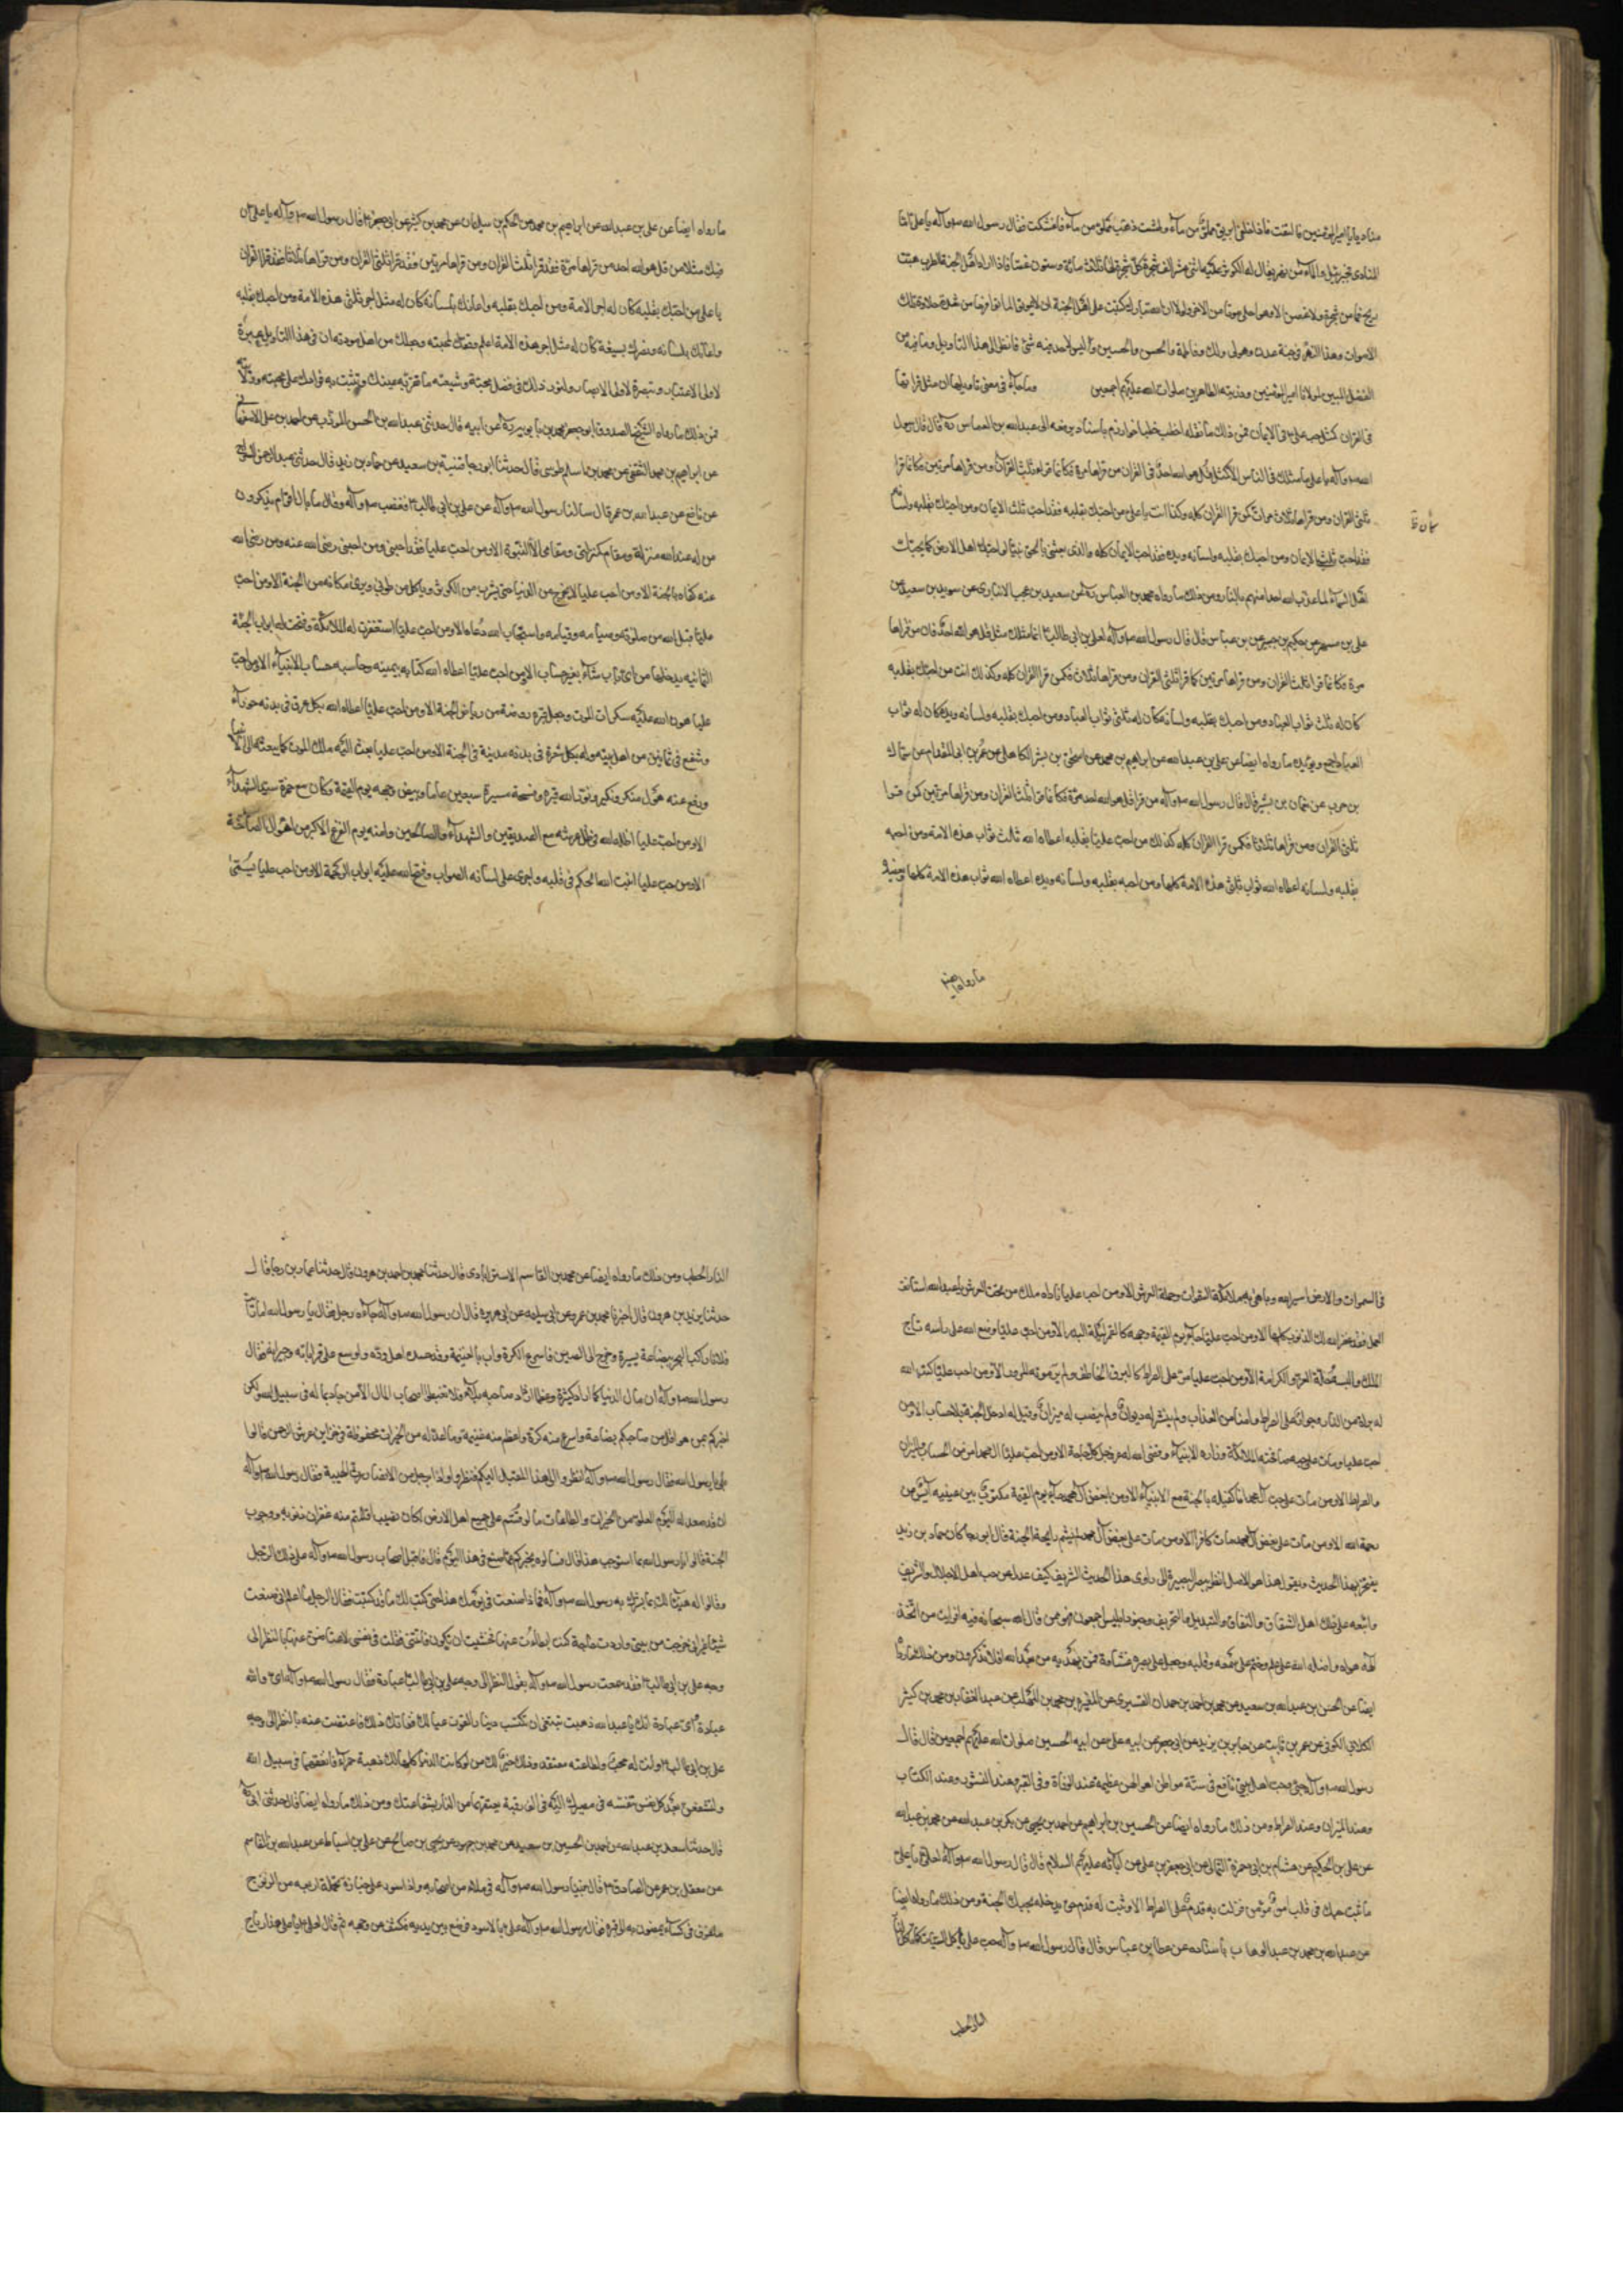 مناديا يا امير المؤمنين فالتفت فاذا بابريق مملو من ماء وطشت ذهب مملو من ماء فاغتسلت فقال رسول الله ص وآله يا علي اما
المنادى فجبرئيل والماء من نهر يقال له الكوثر عليه اثنى عشر الف شجرة كل شجرة لها ثلاث مائة وستون غصنا فاذا اراد اهل الجنة الطرب هبت
ريح فما من شجرة ولا غصن الا وهو احلى صوتا من الاخر ولولا ان الله تبارك كتب على اهل الجنة ان لا يموتوا لماتوا فرحا من شدة حلاوة تلك
الاصوات وهذا النهر فى جنة عدن وهو لى ولك ولفاطمة والحسن والحسين وليس لاحد فيه شئ فانظر الى هذا التاويل وما فيه من
الفضل المبين لمولانا امير المؤمنين وذريته الطاهرين صلوات الله عليهم اجمعين ومما جاء فى معنى تاويلها ان مثل قرائتها
فى القران كمثل حب على ع فى الايمان فمن ذلك ما نقله اخطب خطباء خوارزم باسناد يرفعه الى عبد الله بن العباس ره قال قال رسول
الله ص وآله يا على ما مثلك فى الناس الا كمثل قل هو الله احد فى القران من قراها مرة فكانما قراء ثلث القرآن ومن قراها مرتين فكانما قرا
ثلثى القران ومن قراها ثلاث مرات كمن قرا القران كله وكذا انت يا على من احبك بقلبه فقد احب ثلث الايمان ومن احبك بقلبه ولسانه
فقد احب ثلثى الايمان ومن احبك بقلبه ولسانه ويده فقد احب الايمان كله والذى بعثنى بالحق نبيا لو احبك اهل الارض كما يحبك
اهل السماء لما عذب الله احدا منهم بالنار ومن ذلك ما رواه محمد بن العباس ره عن سعيد بن عجب الانبارى عن سويد بن سعيد عن
على بن مسهر عن حكيم بن جبير عن بن عباس قال قال رسول الله ص وآله لعلى بن ابى طالب ع انما مثلك مثل قل هو الله احد فان من قراها
مرة فكانما قرا ثلث القران ومن قراها مرتين فكانما قرا ثلثى القران ومن قراها ثلاثا فكمن قرا القران كله وكذلك انت من احبك بقلبه
كان له ثلث ثواب العباد ومن احبك بقلبه ولسانه كان له ثلثى ثواب العباد ومن احبك بقلبه ولسانه ويده كان له ثواب
العباد اجمع ويؤيده ما رواه ايضا عن على بن عبد الله عن ابراهيم بن محمد عن اسحق بن بشر الكاهلى عن عمرو بن ابى المقدام عن سماك
بن حرب عن نعمان بن بشير قال قال رسول الله ص وآله من قرا قل هو الله احد مرة فكانما قرا ثلث القران ومن قراها مرتين كمن قرا
ثلثى القران ومن قراها ثلاثا فكمن قرا القران كله كذلك من احب عليا بقلبه اعطاه الله ثلث ثواب هذه الامة ومن احبه
بقلبه ولسانه اعطاه الله ثواب ثلثى هذه الامة كلها ومن احبه بقلبه ولسانه ويده اعطاه الله ثواب هذه الامة كلها
ما رواه ايضا
ما رواه ايضا عن على بن عبد الله عن ابراهيم بن محمد عن الحكم بن سليمان عن محمد بن كثير عن ابى جعفر ع قال رسول الله ص وآله يا على ان
فيك مثلا من قل هو الله احد من قراها مرة فقد قرا ثلث القران ومن قراها مرتين فقد قرا ثلثى القران ومن قراها ثلاثا فقد قرا القران
يا على من احبك بقلبه كان له اجر الامة ومن احبك بقلبه واعانك بلسانه كان له مثل اجر ثلثى هذه الامة ومن احبك بقلبه
واعانك بلسانه ونصرك بسيفه كان له مثل اجر هذه الامة اعلم وفقك لمحبته وجعلك من اهل مودته ان فى هذا التاويل عبرة
لاولى الاعتبار وتبصرة لاولى الابصار ولنورد ذلك فى فضل محبته وشيعته ما تقر به عينك وتثبت به قدمك على محبته
فمن ذلك ما رواه الشيخ الصدوق ابو جعفر محمد بن بابويه ره عن ابيه قال حدثنى عبد الله بن الحسن المؤدب عن احمد بن على الاصفهانى
عن ابراهيم بن محمد الثقفى عن محمد بن اسلم طوسى قال حدثنا ابو رجا قتيبة بن سعيد عن حماد بن زيد قال حدثنى عبد الرحمن السراج
عن نافع عن عبد الله بن عمر قال سالنا رسول الله ص وآله عن على بن ابى طالب ع فغضب ص وآله وقال ما بال اقوام يذكرون
من له عند الله منزلة ومقام كمنزلتى ومقامى الا النبوة الا ومن احب عليا فقد احبنى ومن احبنى رضى الله عنه ومن رضى الله
عنه كفاه بالجنة الا ومن احب عليا لا يخرج من الدنيا حتى يشرب من الكوثر وياكل من طوبى ويرى مكانه من الجنة الا ومن احب
عليا قبل الله من صلوته وصيامه وقيامه واستجاب الله دعاه الا ومن احب عليا استغفرت له الملائكة وفتحت له ابواب الجنة
الثمانيه يدخلها من اى باب شاء بغير حساب الا ومن احب عليا اعطاه الله كتابه بيمينه وحاسبه حساب الانبياء الا ومن احب
عليا هون الله عليه سكرات الموت وجعل قبره روضة من رياض الجنة الا ومن احب عليا اعطاه الله بكل عرق فى بدنه حوراء
وشفع فى ثمانين من اهل بيته وله بكل شعرة فى بدنه مدينة فى الجنة الا ومن احب عليا بعث اليه ملك الموت كما يبعث الى الانبياء
ودفع عنه هول منكر ونكير ونور الله قبره وفسحه مسيرة سبعين عاما وبيض وجهه يوم القيمة وكان مع حمزة سيد الشهداء
الا ومن احب عليا اظله الله فى ظل عرشه مع الصديقين والشهدآء والصالحين وامنه يوم الفزع الاكبر من اهوال الصاخة
الا ومن احب عليا اثبت الله الحكم فى قلبه واجرى على لسانه الصواب وفتح الله عليه ابواب الرحمة الا ومن احب عليا سمى
فى السموات والارض اسير الله وباهى به ملائكة السموات وحملة العرش الا ومن احب عليا ناداه ملك من تحت العرش يا عبد الله استانف
العمل فقد غفر الله لك الذنوب كلها الا ومن احب عليا جاء يوم القيمة وجهه كالقمر ليلة البدر الا ومن احب عليا وضع الله على راسه تاج
الملك والبسه حلة العز والكرامة الا ومن احب عليا مر على الصراط كالبرق الخاطف ولم ير مؤنه للمرور الا ومن احب عليا كتب الله
له براءة من النار وجوازا على الصراط وامنا من العذاب ولم ينشر له ديوان ولم ينصب له ميزان وقيل له ادخل الجنة بلا حساب الا ومن
احب عليا ومات على حبه صافحته الملائكة وزاره الانبياء وقضى الله له كل حاجة الا ومن احب عليا امن من الحساب والميزان
والصراط الا ومن مات على حب آل محمد انا كفيله بالجنة مع الانبياء الا ومن ابغض آل محمد جاء يوم القيمة مكتوب بين عينيه آيس من
رحمة الله الا ومن مات على بغض آل محمد مات كافرا الا ومن مات على بغض آل محمد لم يشم رائحة الجنة قال ابو رجا كان حماد بن زيد
يفتخر بهذا الحديث ويقول هذا هو الاصل انظر ببصر البصيرة الى راوى هذا الحديث الشريف كيف عدل عن حب اهل الاجلال والتشريف
واتبعه على ذلك اهل الشقاق والنفاق والتبديل والتحريف وجنود ابليس اجمعون فهو ممن قال الله سبحانه فيه افرايت من اتخذ
الهه هواه واضله الله على علم وختم على سمعه وقلبه وجعل على بصره غشاوة فمن يهديه من بعد الله افلا تذكرون ومن ذلك ما رواه
ايضا عن الحسن بن عبد الله بن سعيد عن محمد بن احمد بن حمدان القشيرى عن المغيره بن محمد بن المهلب عن عبد الغفار بن محمد بن كثير
الكلابى الكوفى عن عمرو بن ثابت عن جابر بن يزيد عن ابى جعفر عن ابيه على عن ابيه الحسين صلوات الله عليهم اجمعين قال قال
رسول الله ص وآله حبى وحب اهل بيتى نافع فى ستة مواطن اهوالهن عظيمة عند الوفاة وفى القبر وعند النشور وعند الكتاب
وعند الميزان وعند الصراط ومن ذلك ما رواه ايضا عن الحسين بن ابراهيم عن احمد بن يحيى عن بكر بن عبد الله عن محمد بن عبد الله
عن على بن الحكم عن هشام بن ابى حمزة الثمالى عن ابى جعفر بن على عن آبائه عليهم السلام قال قال رسول الله ص وآله لعلى ع يا على
ما ثبت حبك فى قلب امرئ مؤمن فزلت به قدم على الصراط الا وثبت له قدم حتى يدخله بحبك الجنة ومن ذلك ما رواه ايضا
عن عبد الله بن محمد بن عبد الوهاب باسناده عن عطا بن عباس قال قال رسول الله ص وآله حب على ياكل السيئات كما تاكل
النار الحطب
النار الحطب ومن ذلك ما رواه ايضا عن محمد بن القاسم الاسترابادى قال حدثنا محمد بن احمد بن هرون قال حدثنا عماد بن رجا قال
حدثنا يزيد بن هرون قال اخبرنا محمد بن عمرو عن ابى سلمه عن ابى هريره قال ان رسول الله ص وآله جآءه رجل فقال يا رسول الله اما رايت
فلانا ركب البحر ببضاعة يسيرة وخرج الى الصين فاسرع الكرة واب بالغنيمة وقد حسده اهل وده واوسع على قراباته وجيرانه فقال
رسول الله ص وآله ان مال الدنيا كلما ازداد كثرة وعظما ازداد صاحبه بلاء فلا تغبطوا اصحاب المال الا من جاد بماله فى سبيل الله ولكن
اخبركم بمن هو اقل من صاحبكم بضاعة واسرع منه كرة واعظم منه غنيمة وما اعد له من الخيرات محفوظة فى خزاين عرش الرحمن قالوا
بلى يا رسول الله فقال رسول الله ص وآله انظروا الى هذا المقبل اليكم فنظروا واذا رجل من الانصار رث الهيئة فقال رسول الله ص وآله
ان قد صعد له اليوم العلو من الخيرات والطاعات ما لو قسم على جميع اهل الارض لكان نصيب اقلهم منه غفران ذنوبه ووجوب
الجنة قالوا يا رسول الله بما استوجب هذا قال سلوه يخبركم بما صنع فى هذا اليوم قال فاقبل اصحاب رسول الله ص وآله على ذلك الرجل
وقالوا له هنيئا لك بما بشرك به رسول الله ص وآله فماذا صنعت فى يومك هذا حتى كتب لك ما قد كتب فقال الرجل ما اعلم انى صنعت
شيئا غير انى خرجت من بيتى واردت حاجة كنت ابطات عنها فخشيت ان تكون فاتتنى فقلت فى نفسى لاعتاضن عنها بالنظر الى
وجه على بن ابى طالب ع فقد سمعت رسول الله ص وآله يقول النظر الى وجه على بن ابى طالب عبادة فقال رسول الله ص وآله اى والله
عبادة اى عبادة انك يا عبد الله ذهبت تبتغى ان تكتسب دينارا لقوت عيالك ففاتك ذلك فاعتضت عنه بالنظر الى وجه
على بن ابى طالب ع وانت له محب ولطاعته معتقد وذلك خير لك من لو كانت الدنيا كلها لك ذهبة حمراء فانفقتها فى سبيل الله
ولتشفعن بعدد كل نفس تنفسته فى مصيرك اليه فى الف رقبة يعتقها من النار بشفاعتك ومن ذلك ما رواه ايضا قال حدثنى ابى ره
قال حدثنا سعد بن عبد الله عن احمد بن الحسين بن سعيد عن محمد بن جمهور عن يحيى بن صالح عن على بن اسباط عن عبد الله بن القاسم
عن معقل بن عمر عن الصادق ع قال بينا رسول الله ص وآله فى ملاء من اصحابه واذا اسود على جنازة تحمله اربعه من الزنوج
ملفوف فى كساء يمضون به الى قبره فقال رسول الله ص وآله على بالاسود فوضع بين يديه فكشف عن وجهه ثم قال لعلى ع يا على هذا رباح